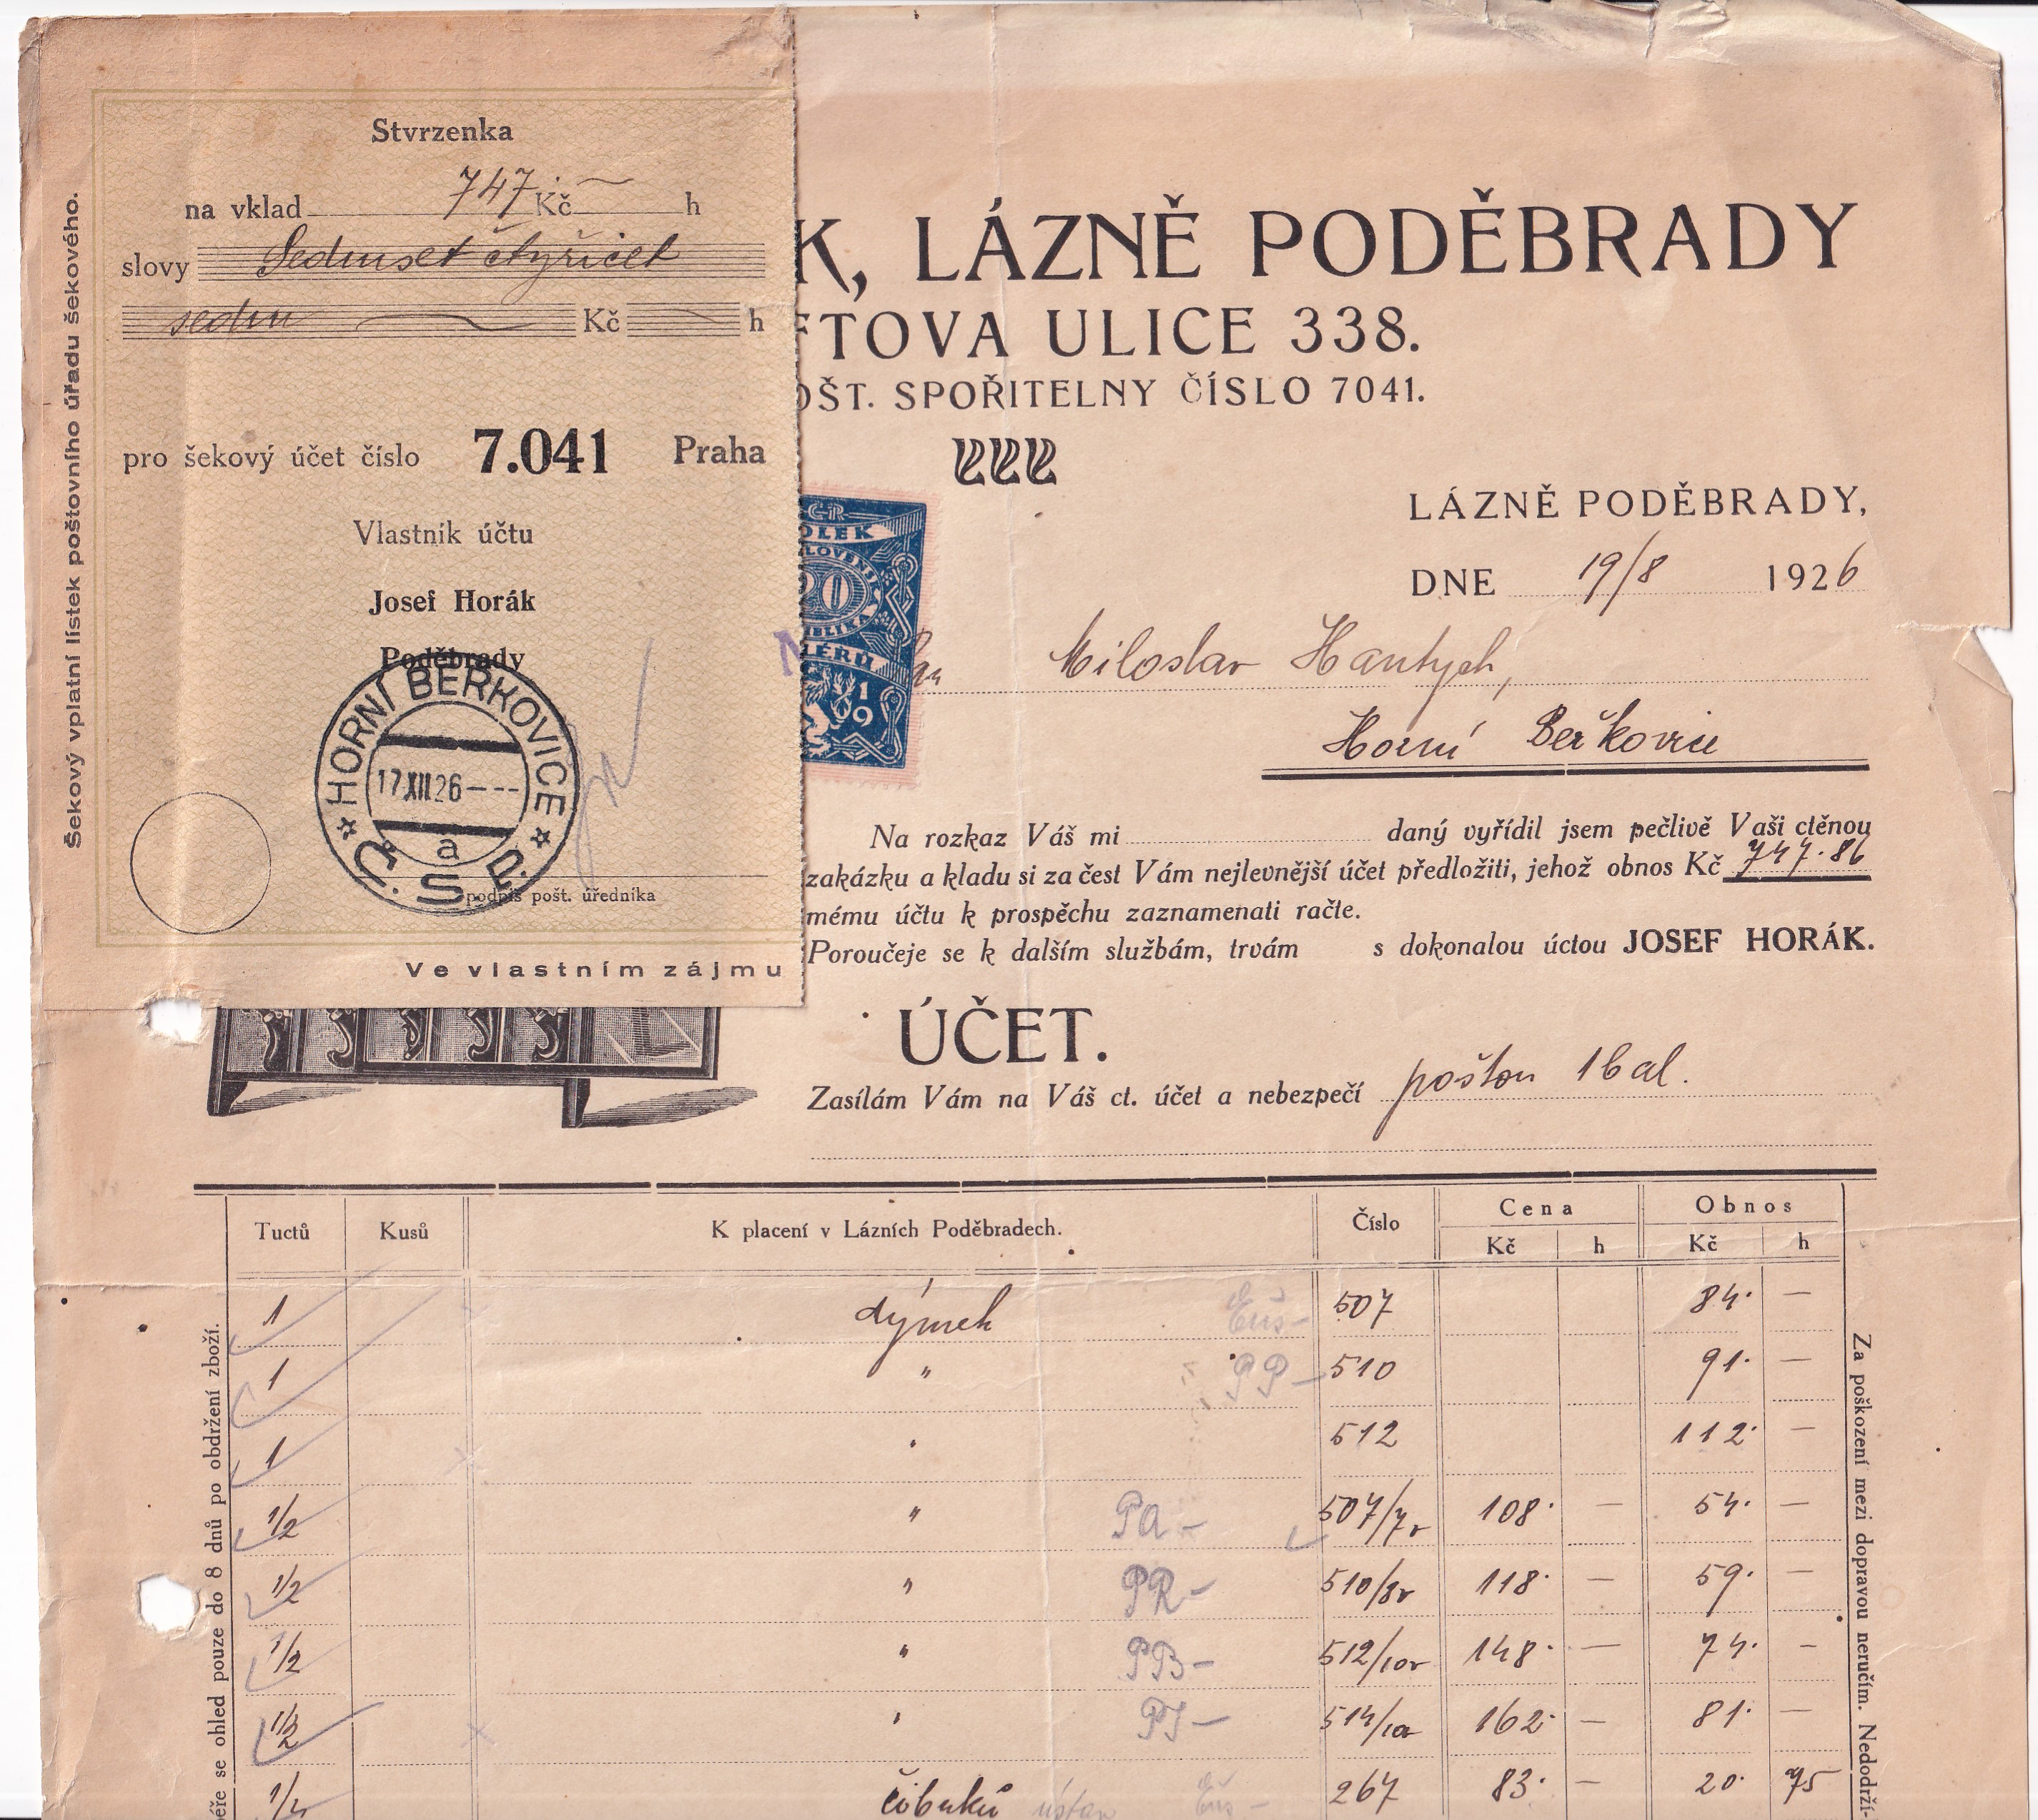 Stvrzenka
na vklad 747 Kč — h
slovy Sedmset čtyřicet
sedm — Kč — h
pro šekový účet číslo 7.041 Praha
Vlastník účtu
Josef Horák
Poděbrady
HORNÍ BEŘKOVICE
17 XII 26 ---
a
Č. S. P.
podpis pošt. úředníka
Ve vlastním zájmu
Šekový vplatní lístek poštovního úřadu šekového.
K, LÁZNĚ PODĚBRADY
FTOVA ULICE 338.
OŠT. SPOŘITELNY ČÍSLO 7041.
LÁZNĚ PODĚBRADY,
DNE 19/8 1926
ČSR
OLEK
20
19
Miloslav Hantych,
Horní Beřkovice
Na rozkaz Váš mi daný vyřídil jsem pečlivě Vaši ctěnou
zakázku a kladu si za čest Vám nejlevnější účet předložiti, jehož obnos Kč 747.86
mému účtu k prospěchu zaznamenati račte.
Poroučeje se k dalším službám, trvám s dokonalou úctou JOSEF HORÁK.
ÚČET.
Zasílám Vám na Váš ct. účet a nebezpečí poštou 1 bal.
Tuctů Kusů K placení v Lázních Poděbradech. Číslo Cena Obnos
Kč h Kč h
1 dýmek 507 84. —
1 " PP — 510 91. —
1 " 512 112. —
1/2 " Pa — 507/7r 108. — 54. —
1/2 " PR — 510/8r 118. — 59. —
1/2 " PB — 512/10r 148. — 74. —
1/2 " PJ — 514/10 162. — 81. —
1/4 čibuků 267 83. — 20. 75
béře se ohled pouze do 8 dnů po obdržení zboží.
Za poškození mezi dopravou neručím. Nedodrží-